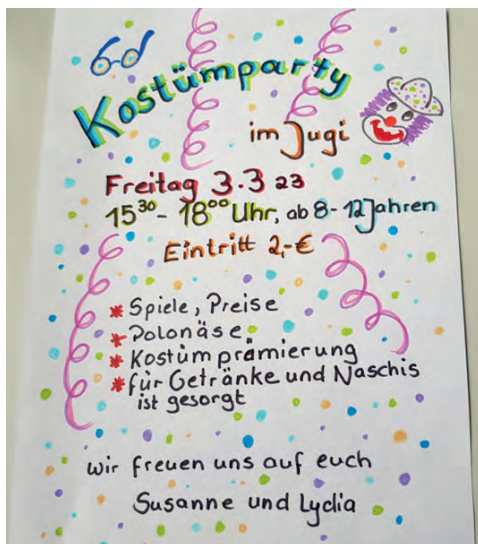 Kostümparty
im Jugi
Freitag 3.3 23
15³⁰- 18⁰⁰ Uhr, ab 8-12 Jahren
Eintritt 2,-€
* Spiele, Preise
* Polonäse
* Kostümprämierung
* für Getränke und Naschis
ist gesorgt
wir freuen uns auf euch
Susanne und Lydia